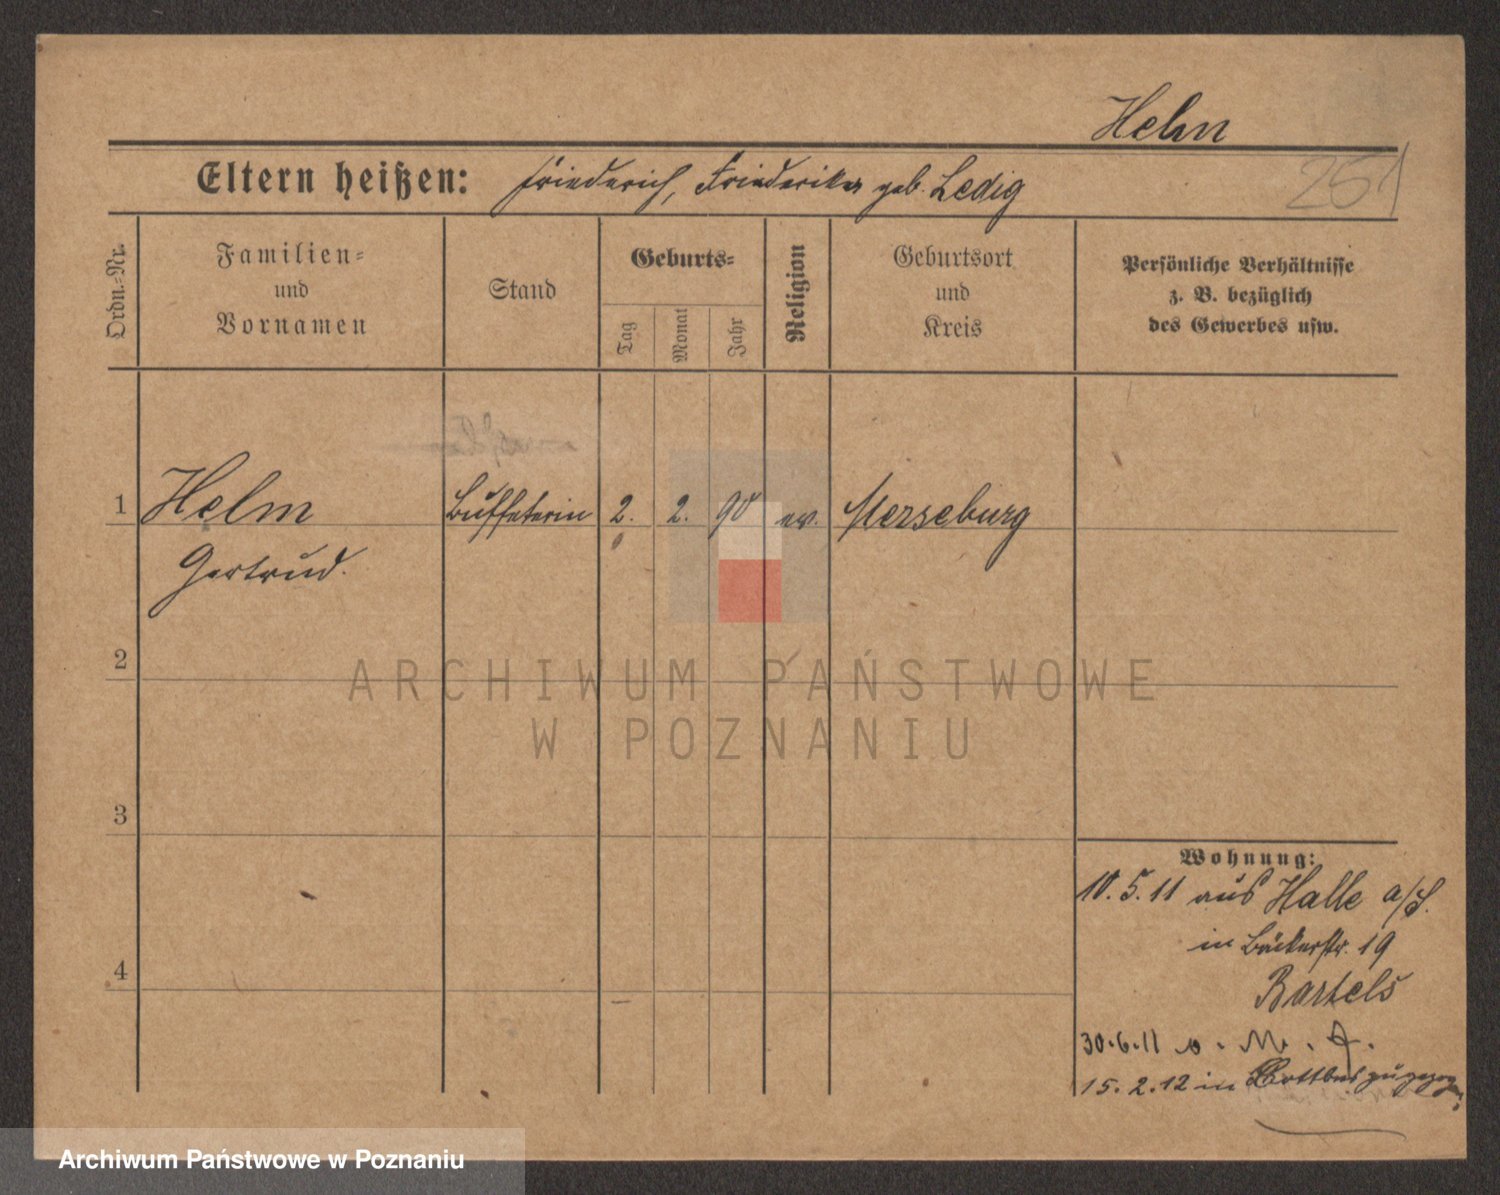 Helm
251
Eltern heißen: Friederich, Friederike geb. Ledig
Ordn.-Nr.
Familien-
und
Vornamen
Stand
Geburts-
Tag
Monat
Jahr
Religion
Geburtsort
und
Kreis
Persönliche Verhältnisse
z. B. bezüglich
des Gewerbes usw.
1 Helm Buffeterin 2. 2. 90 ev. Merseburg
Gertrud.
2
ARCHIWUM PAŃSTWOWE
W POZNANIU
3
Wohnung:
10.5.11 aus Halle a/S.
in Bäckerstr. 19
4
Bartels
30.6.11 v. M. A.
15.2.12 in Cottbus zugezogen
Archiwum Państwowe w Poznaniu